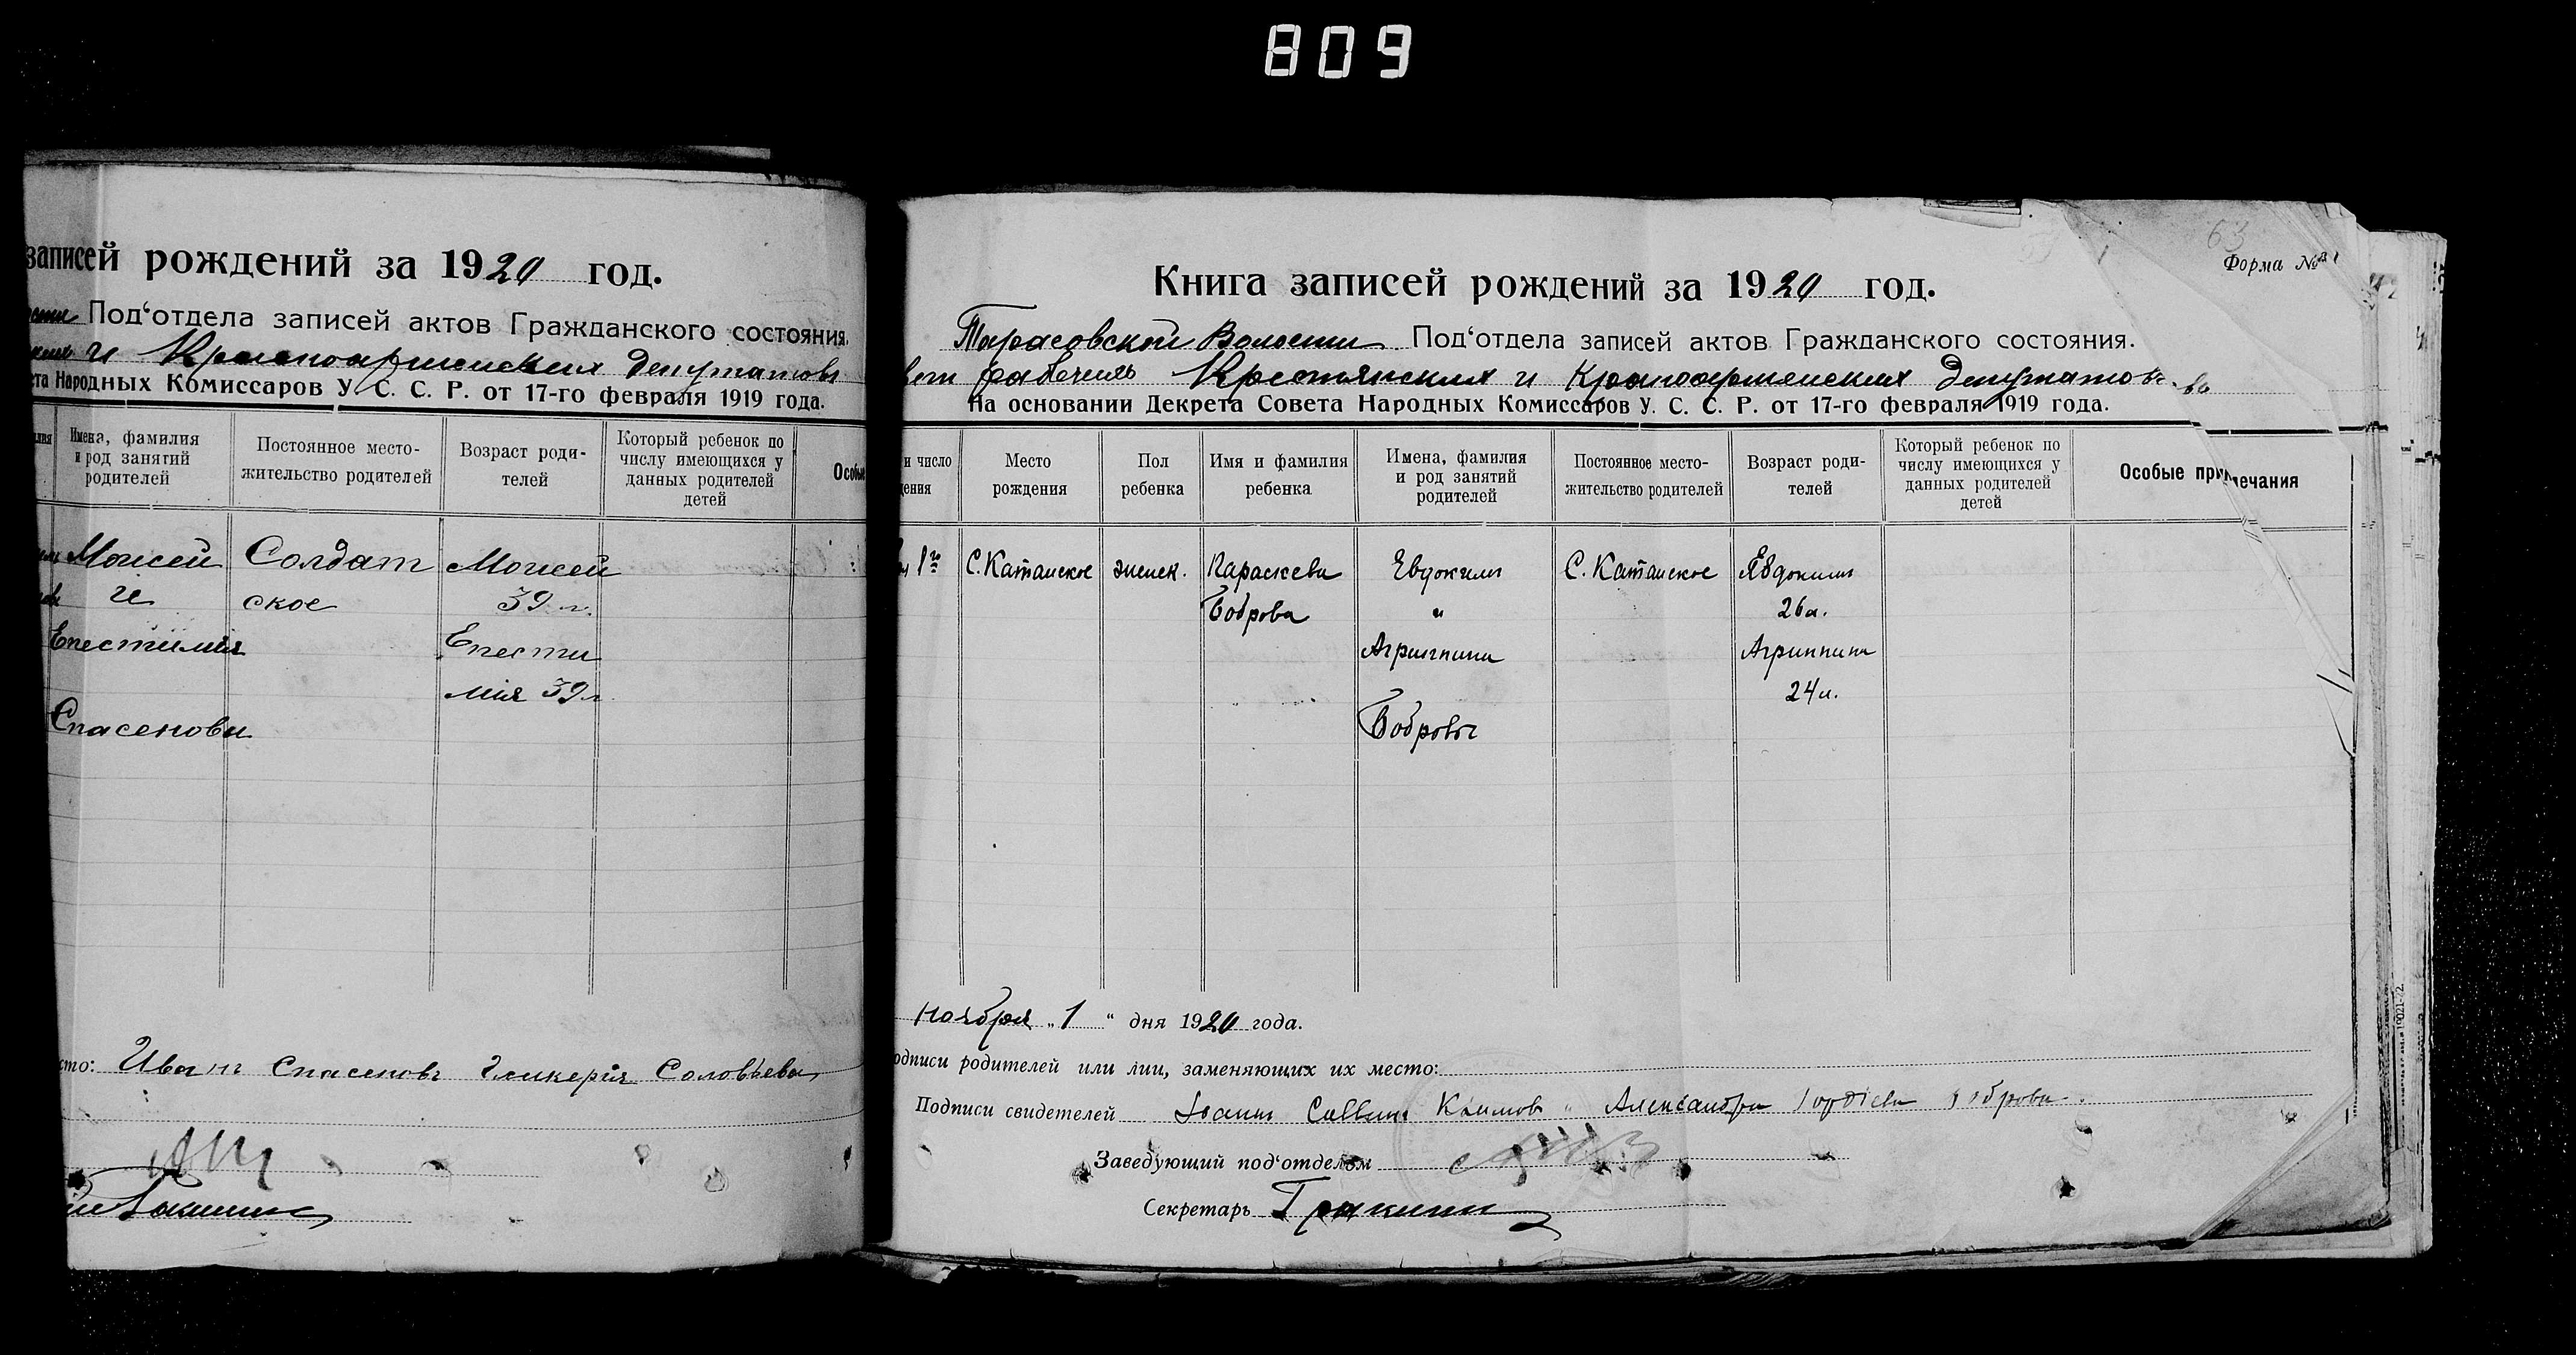 809
записей рождений за 1920 год.
Под'отдела записей актов Гражданского состояния.
и Красноармейских Депутатовъ
Народных Комиссаров У. С. С. Р. от 17-го февраля 1919 года.
Имена, фамилия и род занятий родителей
Постоянное место-жительство родителей
Возраст роди-телей
Который ребенок по числу имеющихся у данных родителей детей
Моисей Солдат Моисей
и ское 39 л.
Епестимия Епести
мия 39 л
Спасеновы
Иванъ Спасеновъ Гликерія Соловьева
63
Форма №
Книга записей рождений за 1920 год.
Тарасовской Волости Под'отдела записей актов Гражданского состояния.
рабочихъ Крестьянских и Красноармейских Депутатовъ
На основании Декрета Совета Народных Комиссаров У. С. С. Р. от 17-го февраля 1919 года.
и число
Место рождения
Пол ребенка
Имя и фамилия ребенка
Имена, фамилия и род занятий родителей
Постоянное место-жительство родителей
Возраст роди-телей
Который ребенок по числу имеющихся у данных родителей детей
Особые примечания
1го С. Катанское женск. Параскева Евдокимъ С. Катанское Явдокимъ
Боброва и 26 л.
Агрипина Агриппина
24 л.
Бобровы
Ноября „1" дня 1920 года.
подписи родителей или лиц, заменяющих их место:
Подписи свидетелей Александра Боброва.
Заведующий под'отделом
Секретарь